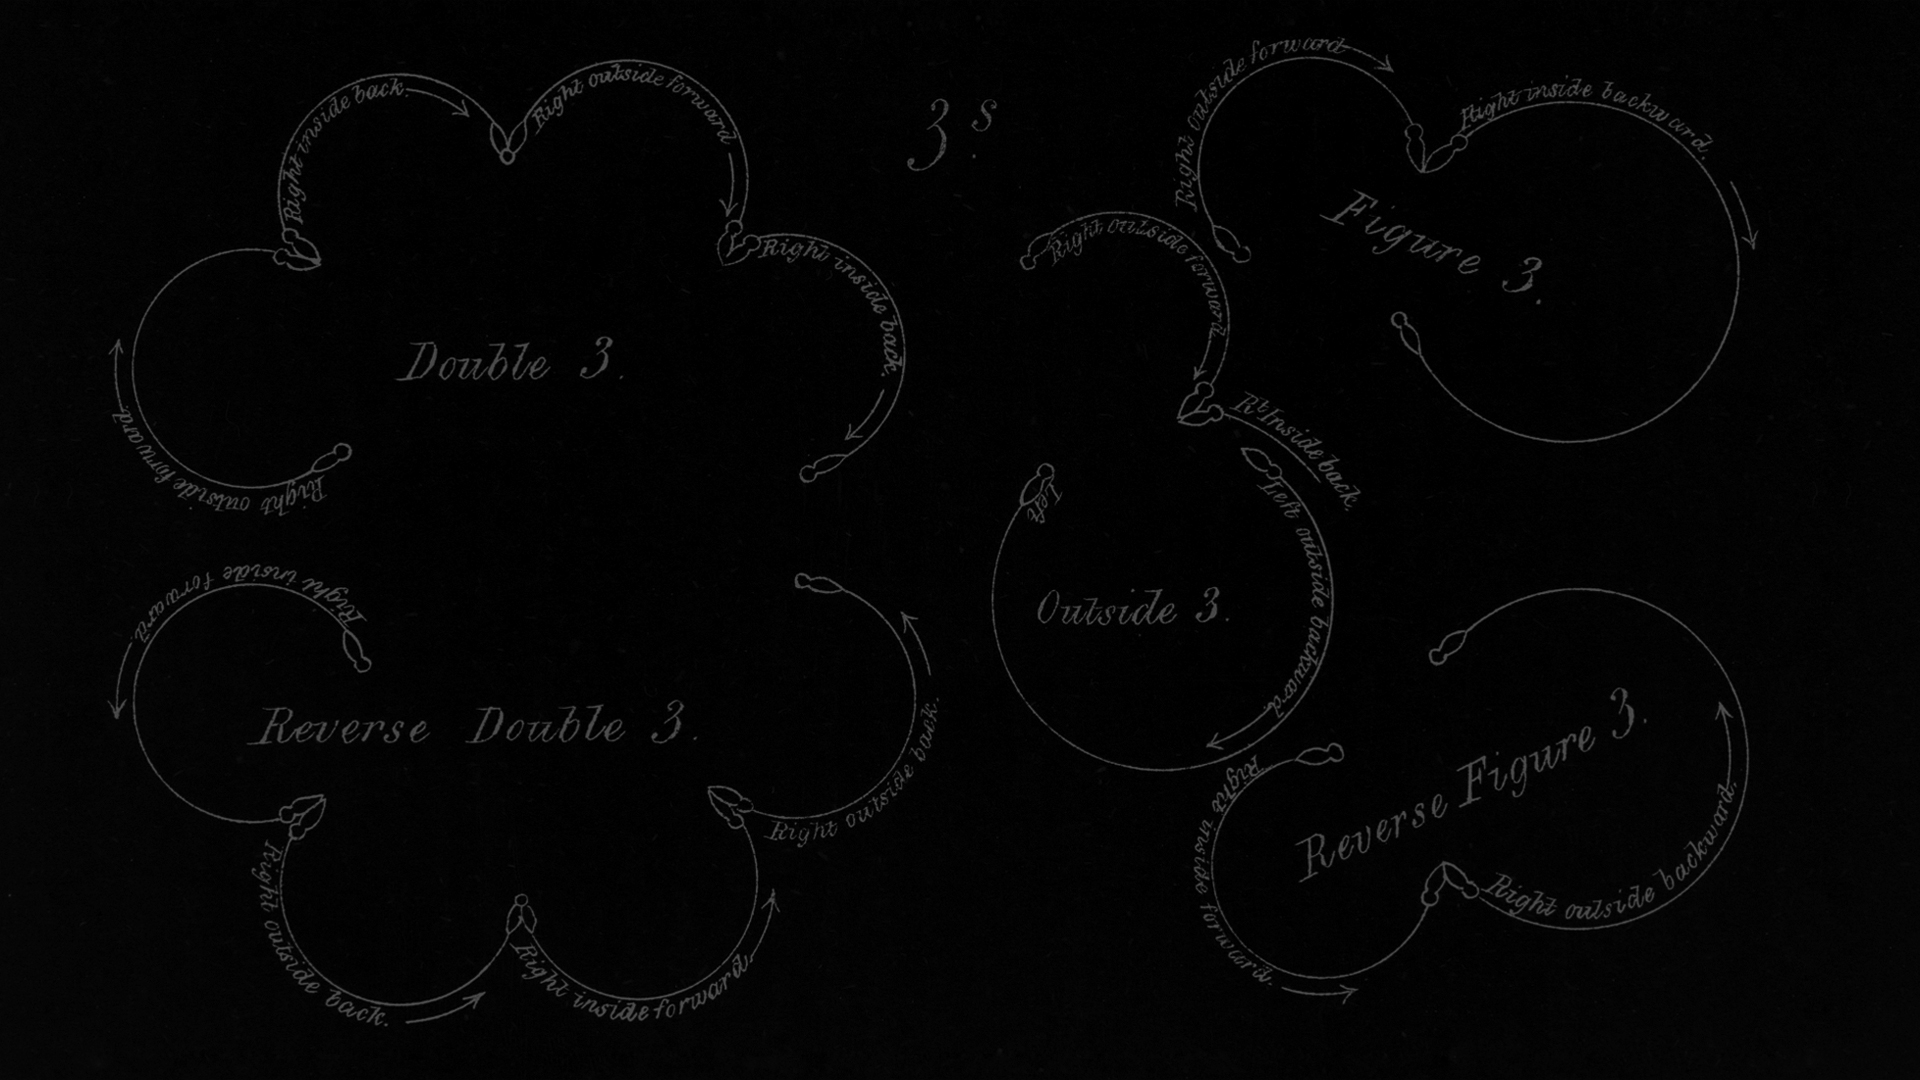 3.s
Double 3.
Right outside forward.
Right inside back.
Right outside forward
Right inside back.
Figure 3.
Right outside forward
Right inside backward.
Outside 3.
Right outside forward.
Rt Inside back.
Left outside backward.
Left
Reverse Double 3.
Right inside forward.
Right outside back.
Right inside forward.
Right outside back.
Reverse Figure 3.
Right inside forward.
Right outside backward.